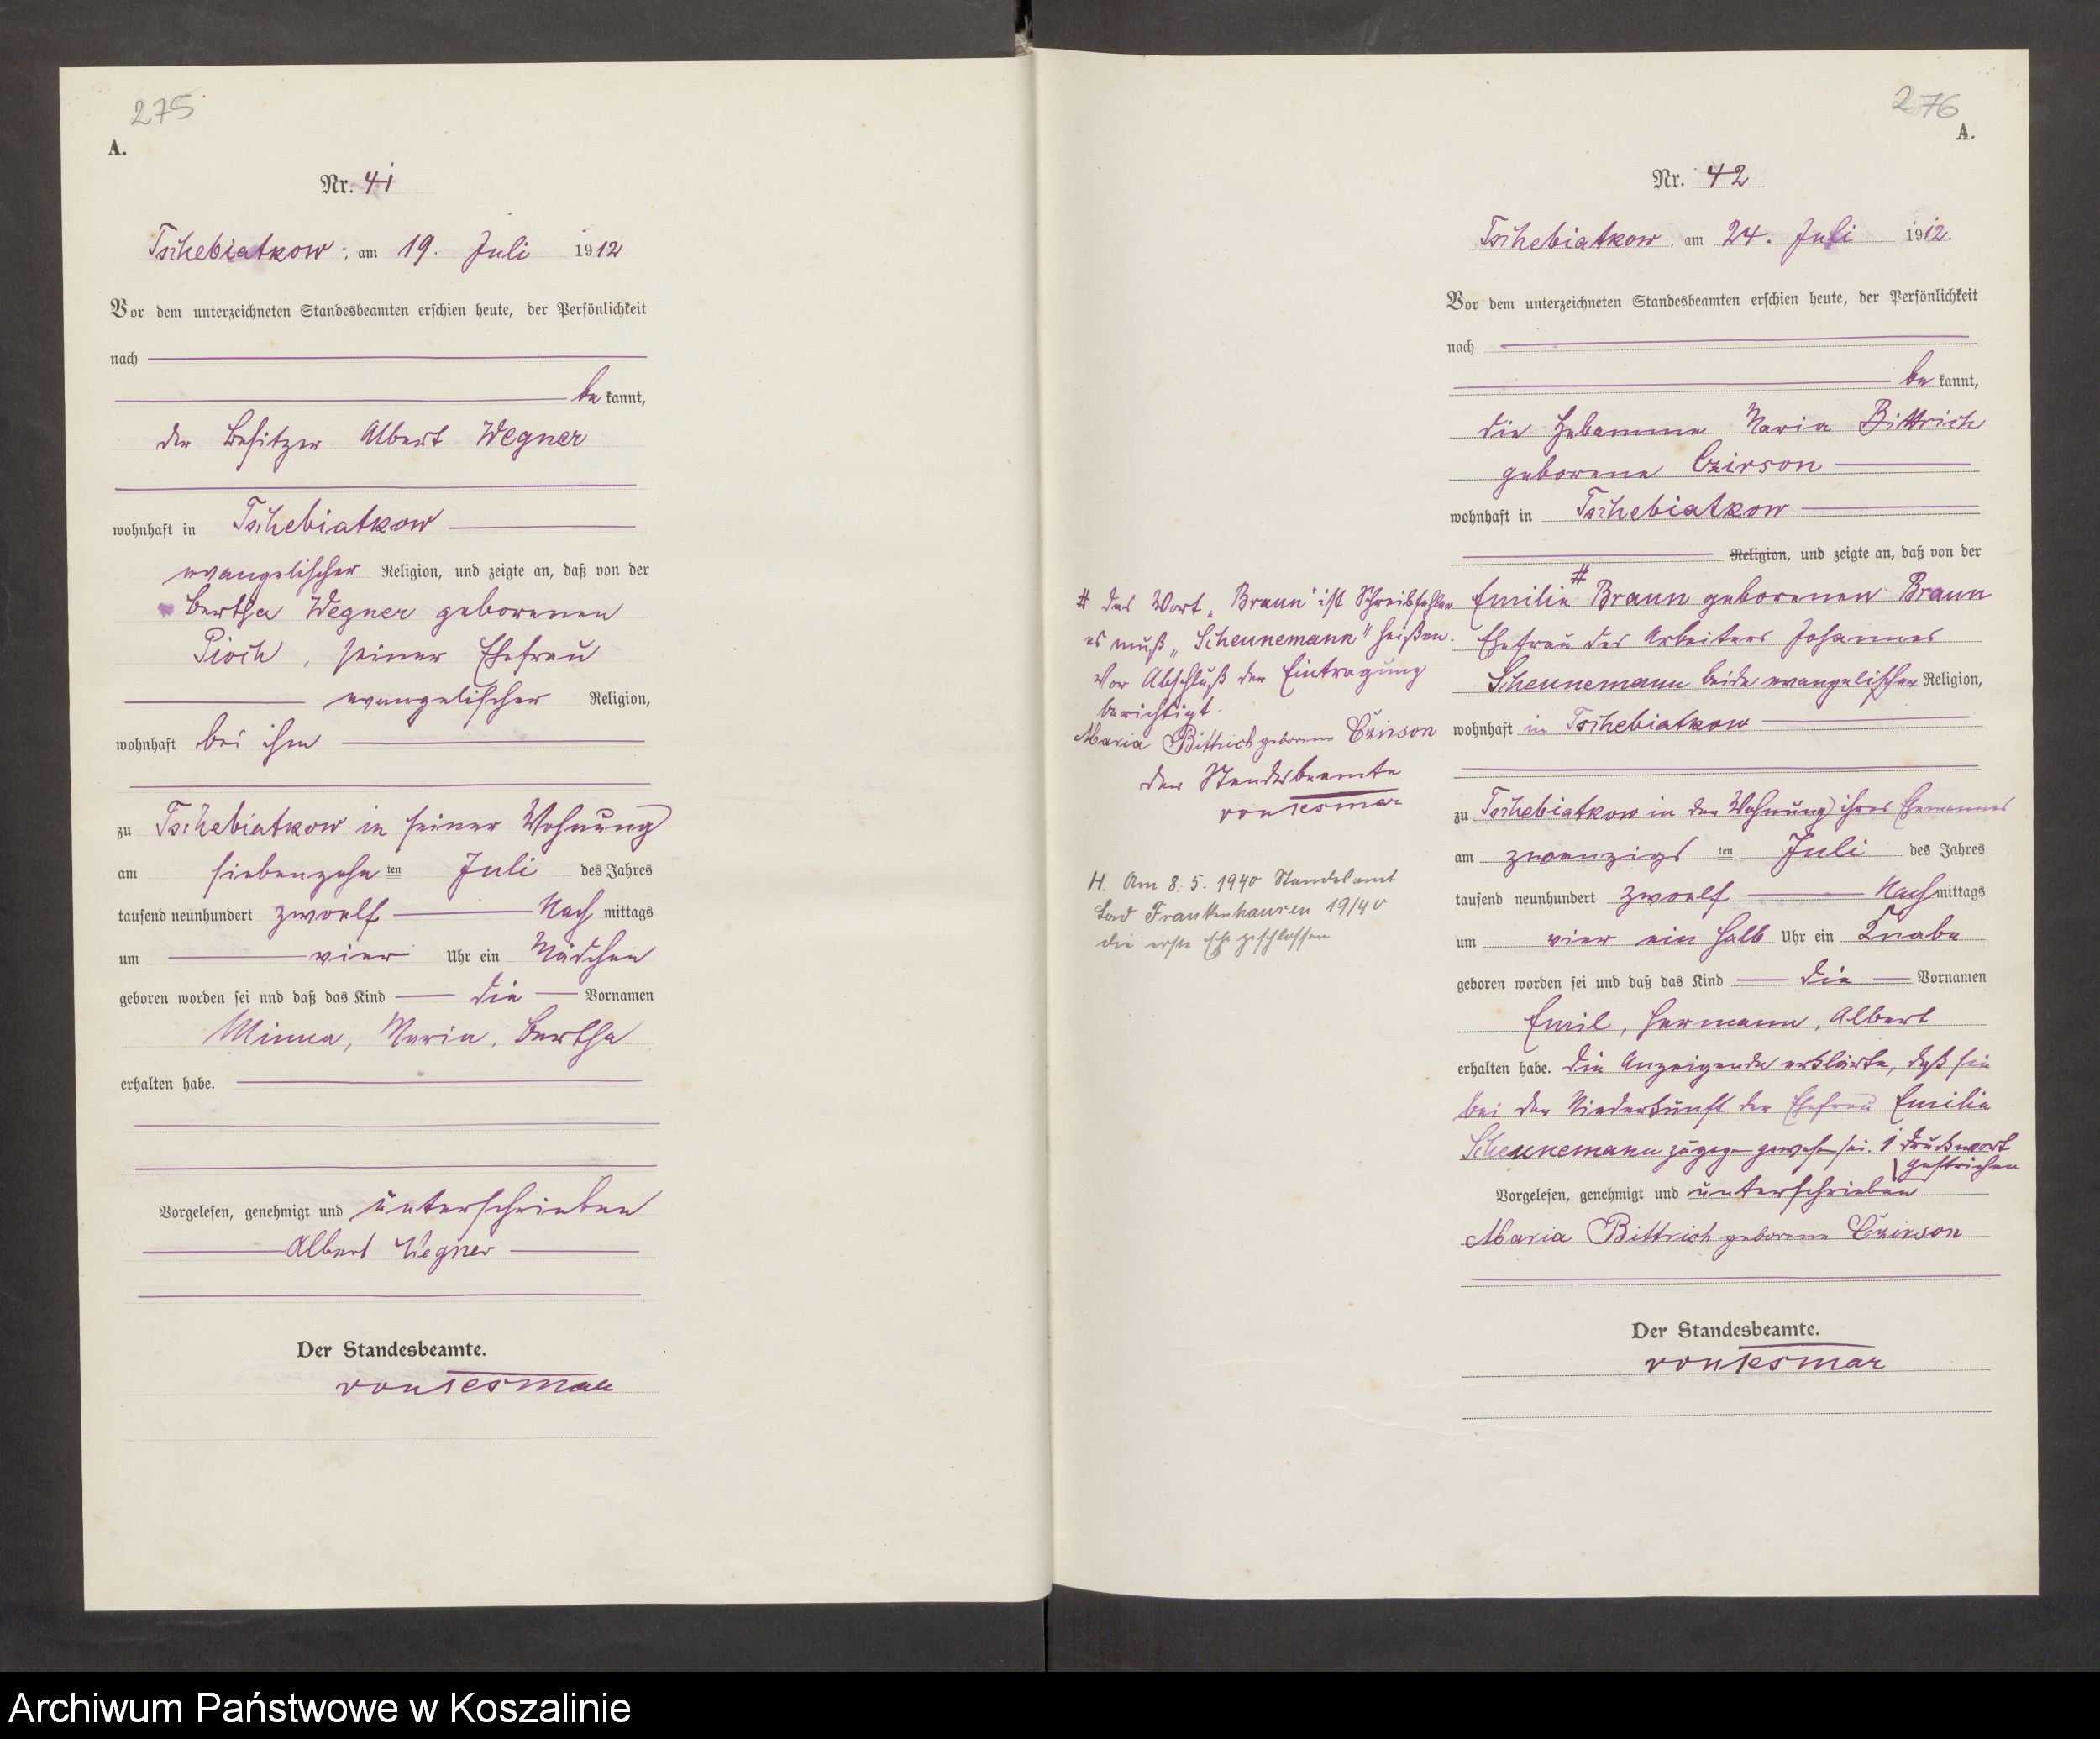 275
A.
Nr. 41
Tschebiatkow, am 19. Juli 1912
Vor dem unterzeichneten Standesbeamten erschien heute, der Persönlichkeit
nach
be kannt,
der Besitzer Albert Wegner
wohnhaft in Tschebiatkow
evangelischer Religion, und zeigte an, daß von der
Bertha Wegner geborenen
Pioch, seiner Ehefrau
evangelischer Religion,
wohnhaft bei ihm
zu Tschebiatkow in seiner Wohnung
am siebenzehn ten Juli des Jahres
tausend neunhundert zwoelf Nach mittags
um vier Uhr ein Mädchen
geboren worden sei nnd daß das Kind die Vornamen
Minna, Maria, Bertha
erhalten habe.
Vorgelesen, genehmigt und unterschrieben
Albert Wegner
Der Standesbeamte.
von Tesmar
276
A.
Nr. 42
Tschebiatkow, am 24. Juli 1912.
Vor dem unterzeichneten Standesbeamten erschien heute, der Persönlichkeit
nach
be kannt,
die Hebamme Maria Bittrich
geborene Czirson
wohnhaft in Tschebiatkow
Religion, und zeigte an, daß von der
Emilie # Braun geborenen Braun
Ehefrau des Arbeiters Johannes
Scheunemann beide evangelischer Religion,
wohnhaft in Tschebiatkow
zu Tschebiatkow in der Wohnung ihres Ehemannes
am zwanzigs ten Juli des Jahres
tausend neunhundert zwoelf Nach mittags
um vier ein halb Uhr ein Knabe
geboren worden sei und daß das Kind die Vornamen
Emil, Hermann, Albert
erhalten habe. Die Anzeigende erklärte, daß sie
bei der Niederkunft der Ehefrau Emilie
Scheunemann zugegen gewesen sei. 1 Druckwort
gestrichen
Vorgelesen, genehmigt und unterschrieben
Maria Bittrich geborene Czirson
Der Standesbeamte.
von Tesmar
# das Wort „Braun" ist Schreibfehler
es muß „Scheunemann" heißen.
Vor Abschluß der Eintragung
berichtigt.
Maria Bittrich geborene Czirson
der Standesbeamte
von Tesmar
H. Am 8. 5. 1940 Standesamt
Bad Frankenhausen 19/40
die erste Ehe geschlossen
Archiwum Państwowe w Koszalinie